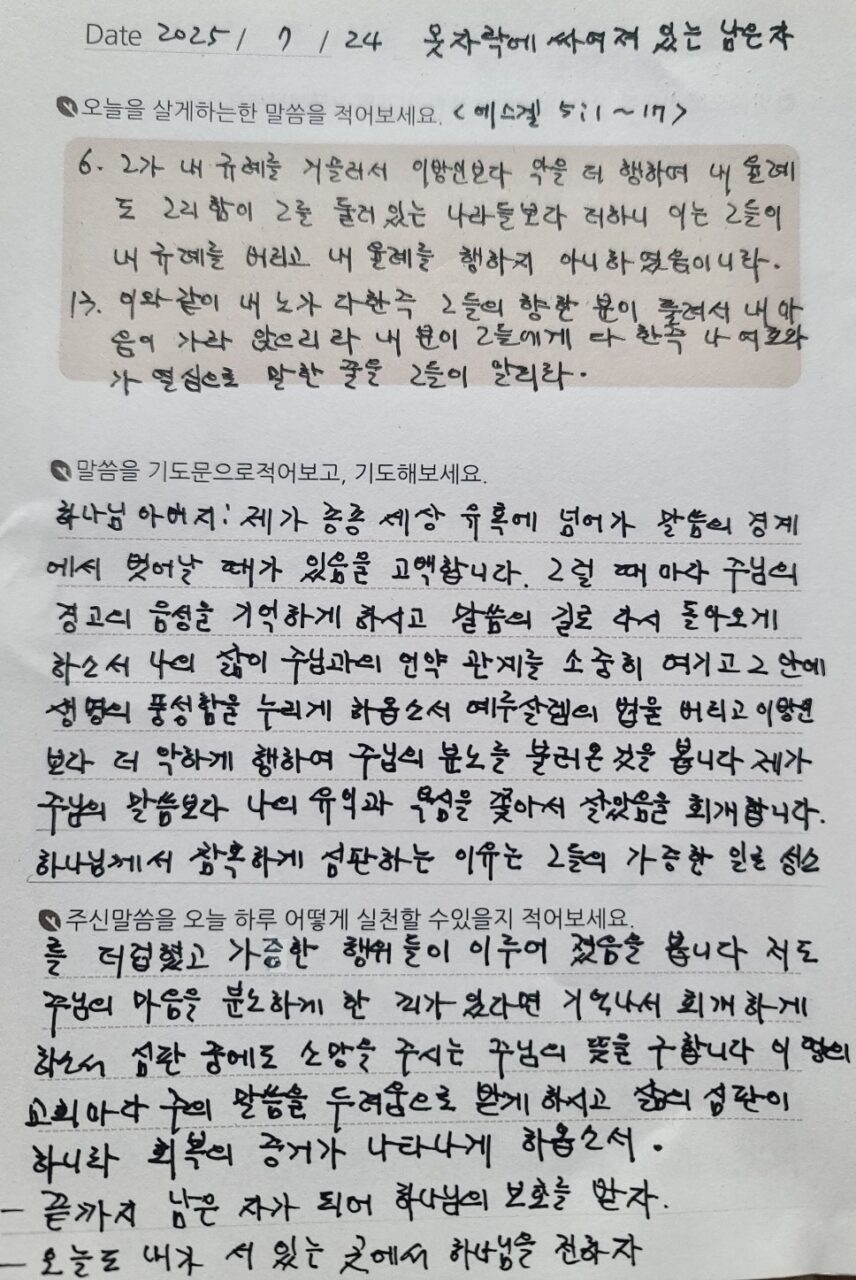 Date 2025 / 7 / 24 옷자락에 싸여져 있는 남은자
오늘을 살게하는한 말씀을 적어보세요. <에스겔 5:1~17>
6. 그가 내 규례를 거슬러서 이방인보다 악을 더 행하며 내 율례
도 그리함이 그를 둘러 있는 나라들보다 더하니 이는 그들이
내 규례를 버리고 내 율례를 행하지 아니하였음이니라.
13. 이와 같이 내 노가 다한즉 그들의 향한 분이 풀려서 내 마
음이 가라 앉으리라 내 분이 그들에게 다 한즉 나 여호와
가 열심으로 말한 줄을 그들이 알리라.
말씀을 기도문으로적어보고, 기도해보세요.
하나님 아버지: 제가 종종 세상 유혹에 넘어가 말씀의 경계
에서 벗어날 때가 있음을 고백합니다. 그럴 때 마다 주님의
경고의 음성을 기억하게 하시고 말씀의 길로 다시 돌아오게
하소서 나의 삶이 주님과의 언약 관계를 소중히 여기고 그 안에
생명의 풍성함을 누리게 하옵소서 예루살렘의 법을 버리고 이방인
보다 더 악하게 행하여 주님의 분노를 불러온 것을 봅니다 제가
주님의 말씀보다 나의 유익과 욕심을 쫓아서 살았음을 회개합니다.
하나님께서 참혹하게 심판하는 이유는 그들의 가증한 일로 성소
주신말씀을 오늘 하루 어떻게 실천할 수있을지 적어보세요.
를 더럽혔고 가증한 행위들이 이루어 졌음을 봅니다 저도
주님의 마음을 분노하게 한 죄가 있다면 기억나서 회개하게
하소서 심판 중에도 소망을 주시는 주님의 뜻을 구합니다 이 땅의
교회마다 주의 말씀을 두려움으로 받게 하시고 삶의 심판이
아니라 회복의 증거가 나타나게 하옵소서.
- 끝까지 남은 자가 되어 하나님의 보호를 받자.
- 오늘도 내가 서 있는 곳에서 하나님을 전하자